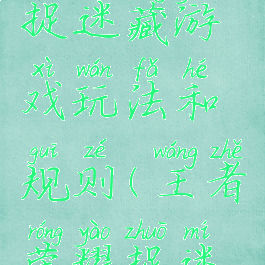 捉迷藏游
xì wán fǎ hé
戏玩法和
guī zé wáng zhě
规则(王者
róng yào zhuō mí
荣耀捉迷